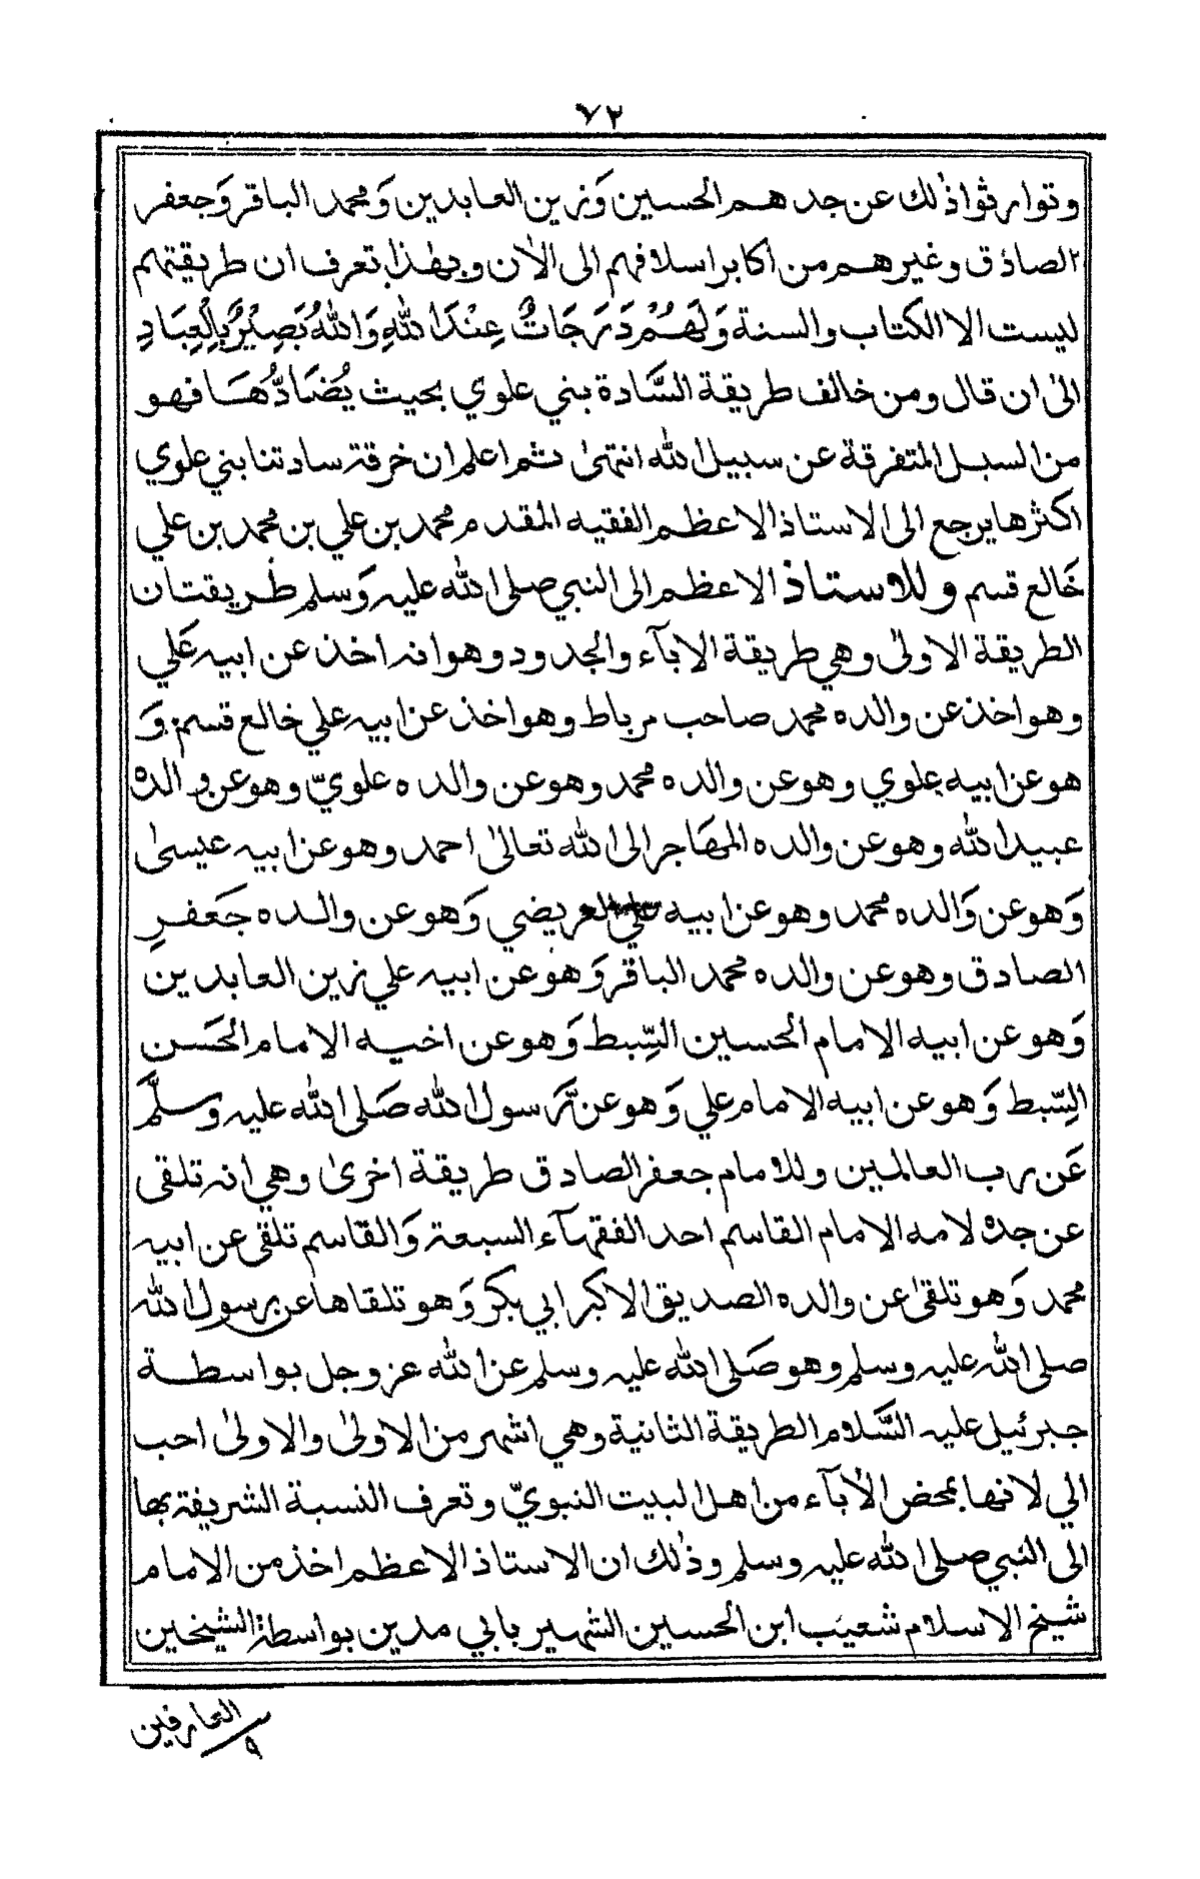 ٧٢
وتوارثوا ذٰلك عن جدهم الحسين وَزين العابدين وَمحمد الباقر وَجعفر
الصادق وغيرهم من اكابر اسلافهم الى الاٰن وبهٰذا تعرف ان طريقتهم
ليست الا الكتاب والسنة وَلَهُمْ دَرَجَاتٌ عِنْدَ اللهِ وَاللهُ بَصِيْرٌ بِالْعِبَادِ
الىٰ ان قال ومن خالف طريقة السَّادة بني علوي بحيث يُضَادُّهَا فهو
من السبل المتفرقة عن سبيل الله انتهىٰ ثم اعلم ان خرقة سادتنا بني علوي
اكثرها يرجع الى الاستاذ الاعظم الفقيه المقدم محمد بن علي بن محمد بن علي
خَالع قسم وللاستاذ الاعظم الى النبي صلى الله عليه وَسلم طريقتان
الطريقة الاولىٰ وهي طريقة الاٰبآء والجدود وهو انه اخذ عن ابيه عَلي
وهو اخذ عن والده محمد صاحب مرباط وهو اخذ عن ابيه علي خالع قسم وَ
هو عن ابيه علوي وهو عن والده محمد وهو عن والده علويّ وهو عن والده
عبيد الله وهو عن والده المهَاجر الى الله تعالىٰ احمد وهو عن ابيه عيسىٰ
وَهو عن وَالده محمد وهو عن ابيه علي العريضي وَهو عن والده جَعفرٍ
الصادق وهو عن والده محمد الباقر وَهو عن ابيه علي زين العابدين
وَهو عن ابيه الامام الحسين السِّبط وَهو عن اخيه الامام الحَسن
السِّبط وَهو عن ابيه الامام علي وَهو عن رَسول الله صَلى الله عليه وسلَّم
عَن رب العالمين وللامام جعفر الصادق طريقة اخرىٰ وهي انه تلقى
عن جده لامه الامام القاسم احد الفقهآء السبعة وَالقاسم تلقى عن ابيه
محمد وَهو تلقىٰ عن والده الصديق الاكبر ابي بكر وَهو تلقاها عن رسول الله
صلى الله عليه وسلم وهو صَلى الله عليه وسلم عن الله عز وجل بواسطة
جبرئيل عليه السَّلام الطريقة الثانية وهي اشهر من الاولىٰ والاولىٰ احب
الي لانها بمحض الاٰبآء من اهل البيت النبويّ وتعرف النسبة الشريفة بها
الى النبي صلى الله عليه وسلم وذٰلك ان الاستاذ الاعظم اخذ من الامام
شيخ الاسلام شعيَب ابن الحسين الشهير بابي مدين بواسطة الشيخين
العارفين
٩